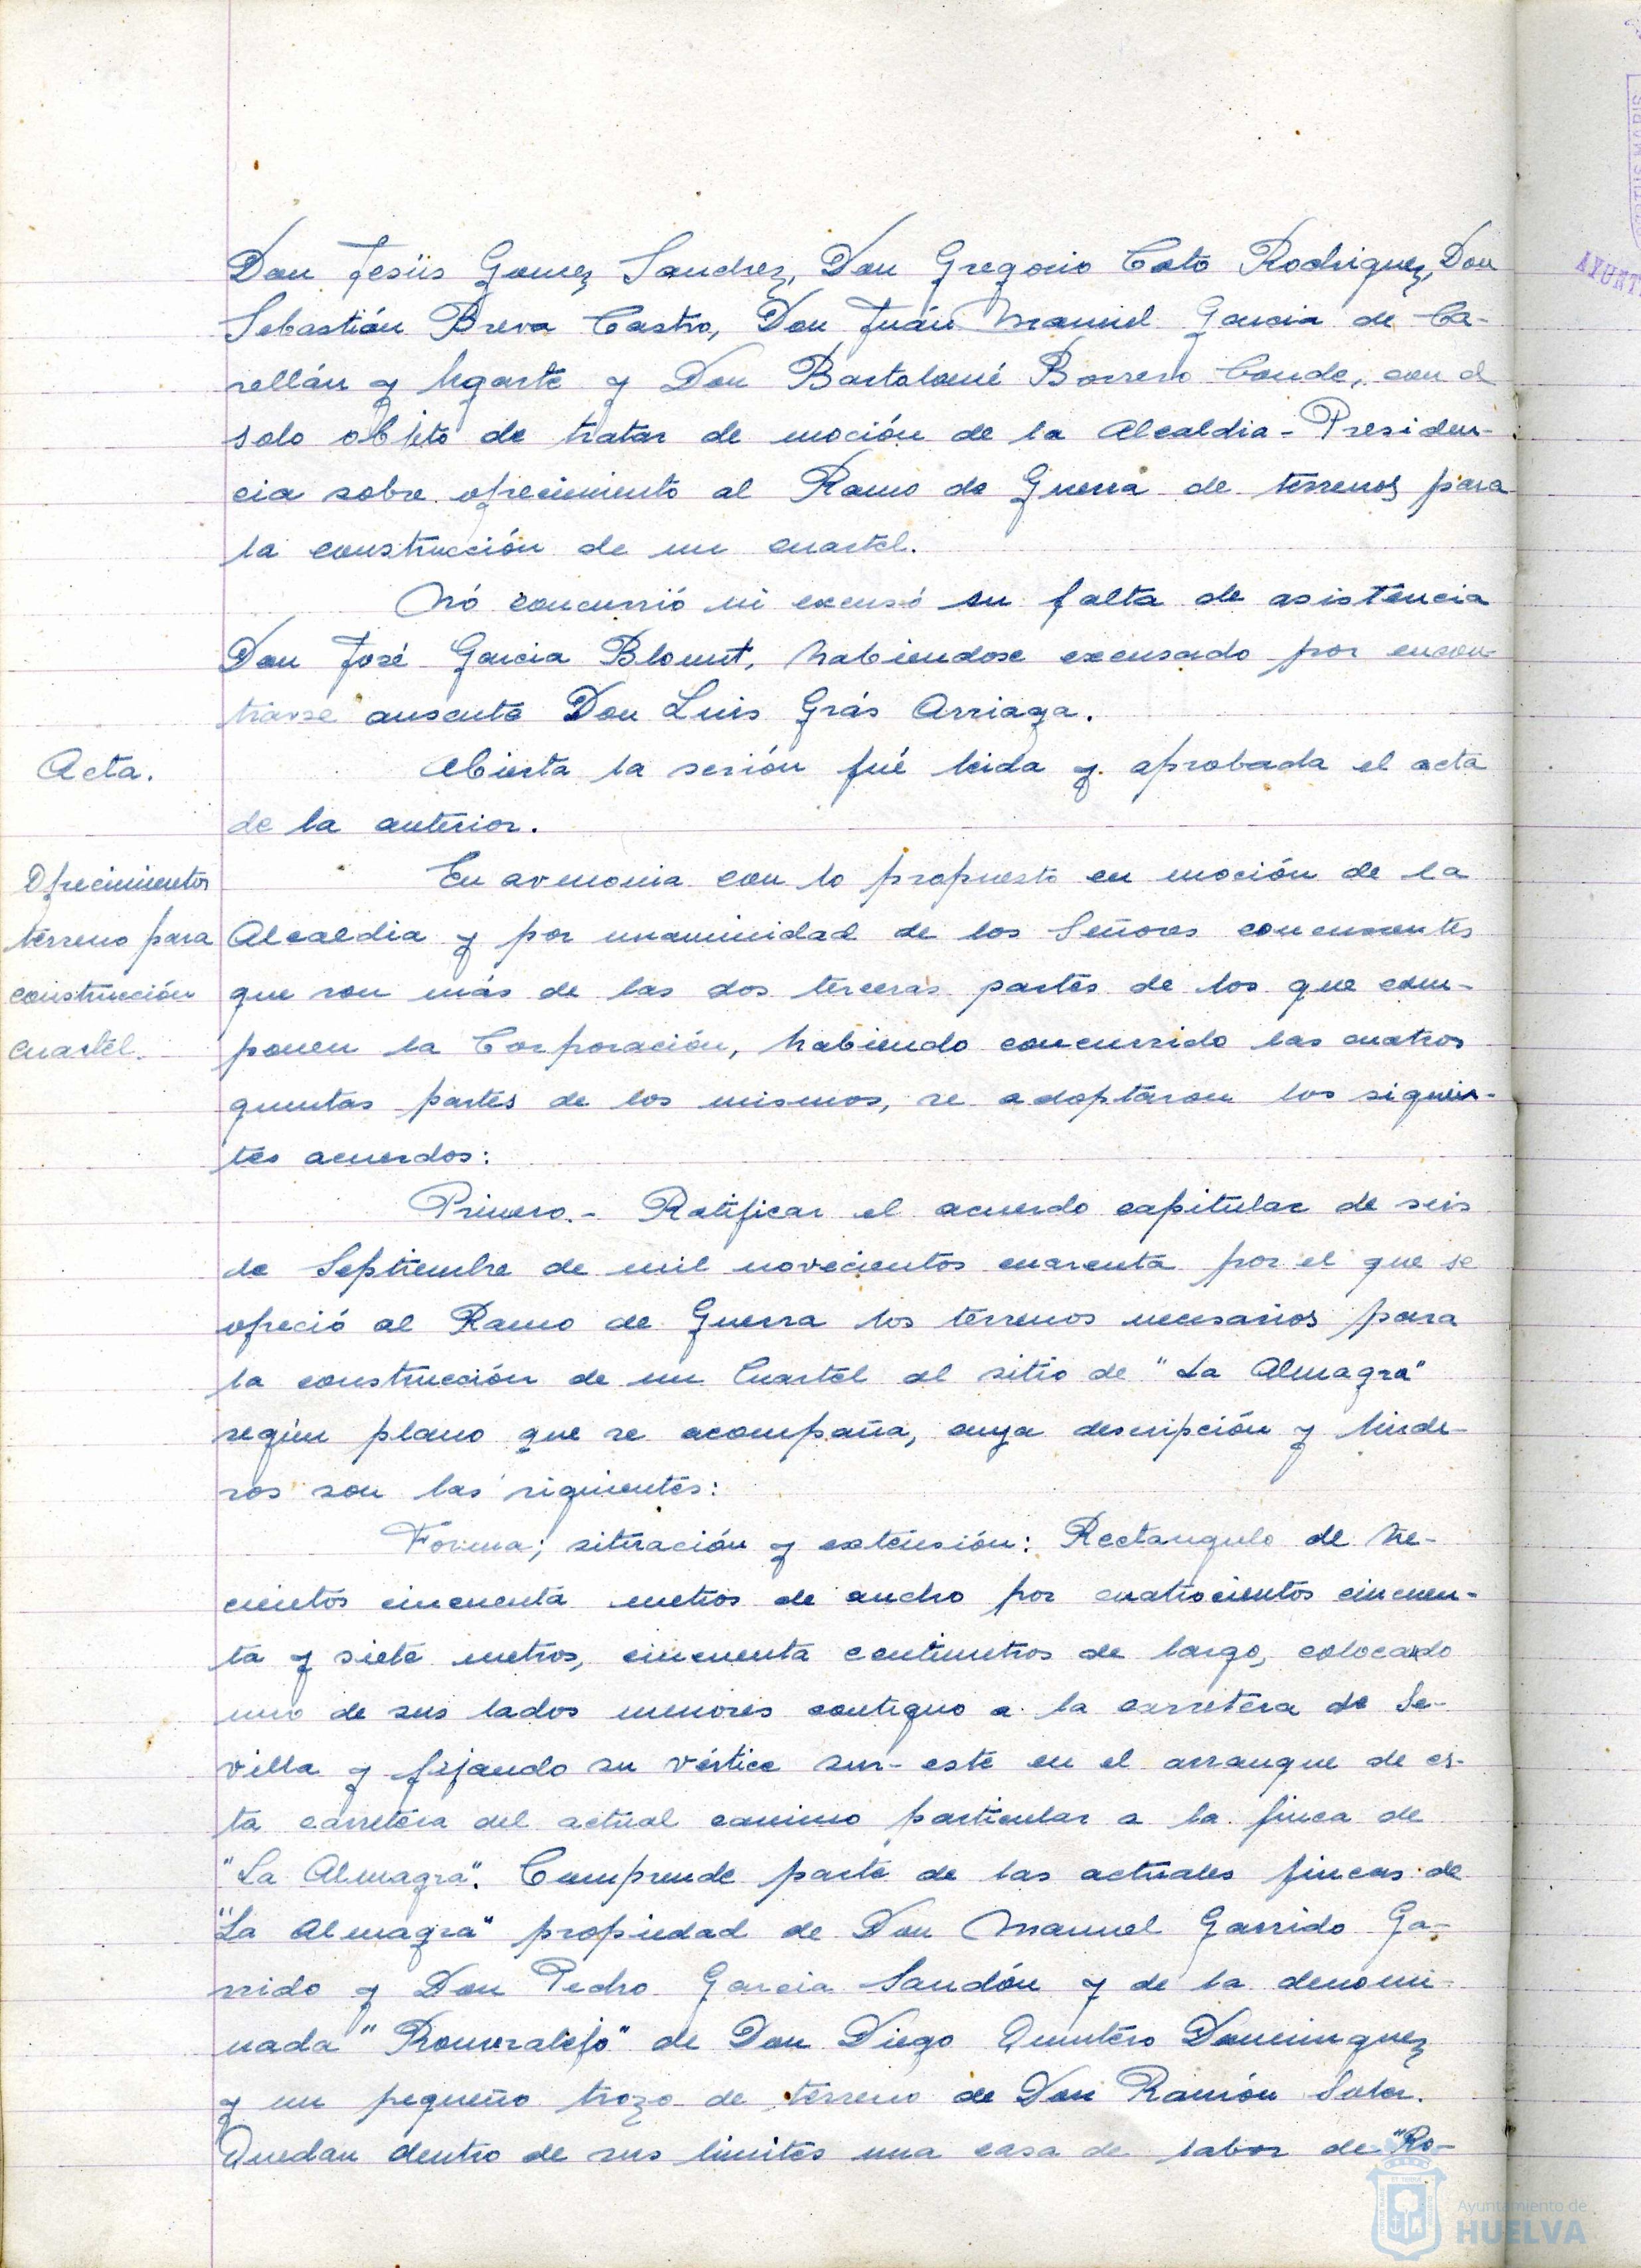 Don Jesús Gomez Sanchez, Don Gregorio Coto Rodriguez, Don
Sebastián Breva Castro, Don Juán Manuel Garcia de Ca-
rellán y Ugarte y Don Bartolomé Borrero Conde, con el
solo objeto de tratar de moción de la Alcaldia-Presiden-
cia sobre ofrecimiento al Ramo de Guerra de terrenos para
la construcción de un cuartel.
Nó concurrió ni excusó su falta de asistencia
Don José Garcia Blomut, habiendose excusado por encon-
trarse ausente Don Luis Grás Arriaga.
Acta.
Abierta la sesión fué leida y aprobada el acta
de la anterior.
Ofrecimientos
terreno para
construcción
cuartel.
En avenonia con lo propuesto en moción de la
Alcaldia y por unanimidad de los Señores concurrentes
que son más de las dos terceras partes de los que com-
ponen la Corporación, habiendo concurrido las cuatros
quintas partes de los mismos, se adoptaron los siguien-
tes acuerdos:
Primero.- Ratificar el acuerdo capitular de seis
de Septiembre de mil novecientos cuarenta por el que se
ofreció al Ramo de Guerra los terrenos necesarios para
la construcción de un Cuartel al sitio de "La Almagra"
según plano que se acompaña, cuya descripción y linde-
ros son las siguientes:
Forma; situación y extensión: Rectangulo de tre-
cientos cincuenta metros de ancho por cuatrocientos cincuen-
ta y siete metros, cincuenta centimetros de largo, colocando
uno de sus lados menores contiguo a la carretera de Se-
villa y fijando su vértice sur-este en el arranque de es-
ta carretera del actual camino particular a la finca de
"La Almagra". Comprende parte de las actuales fincas de
"La Almagra" propiedad de Don Manuel Garrido Ga-
rrido y Don Pedro Garcia Sandón y de la denomi-
nada "Romeralejo" de Don Diego Quintero Dominguez
y un pequeño trozo de terreno de Don Ramón Soler.
Quedan dentro de sus limites una casa de labor de "Ro-
AYUNT
Ayuntamiento de
HUELVA